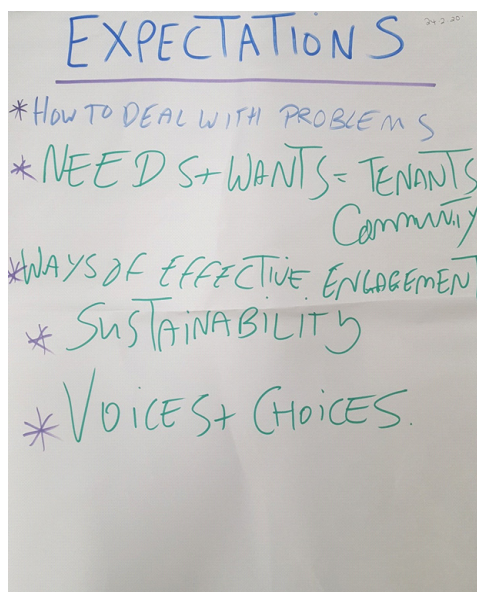 24.2.20
EXPECTATIONS
* HOW TO DEAL WITH PROBLEMS
* NEEDS + WANTS = TENANTS
Community
* WAYS OF EFFECTIVE ENGAGEMENT
* SUSTAINABILITY
* VOICES + CHOICES.